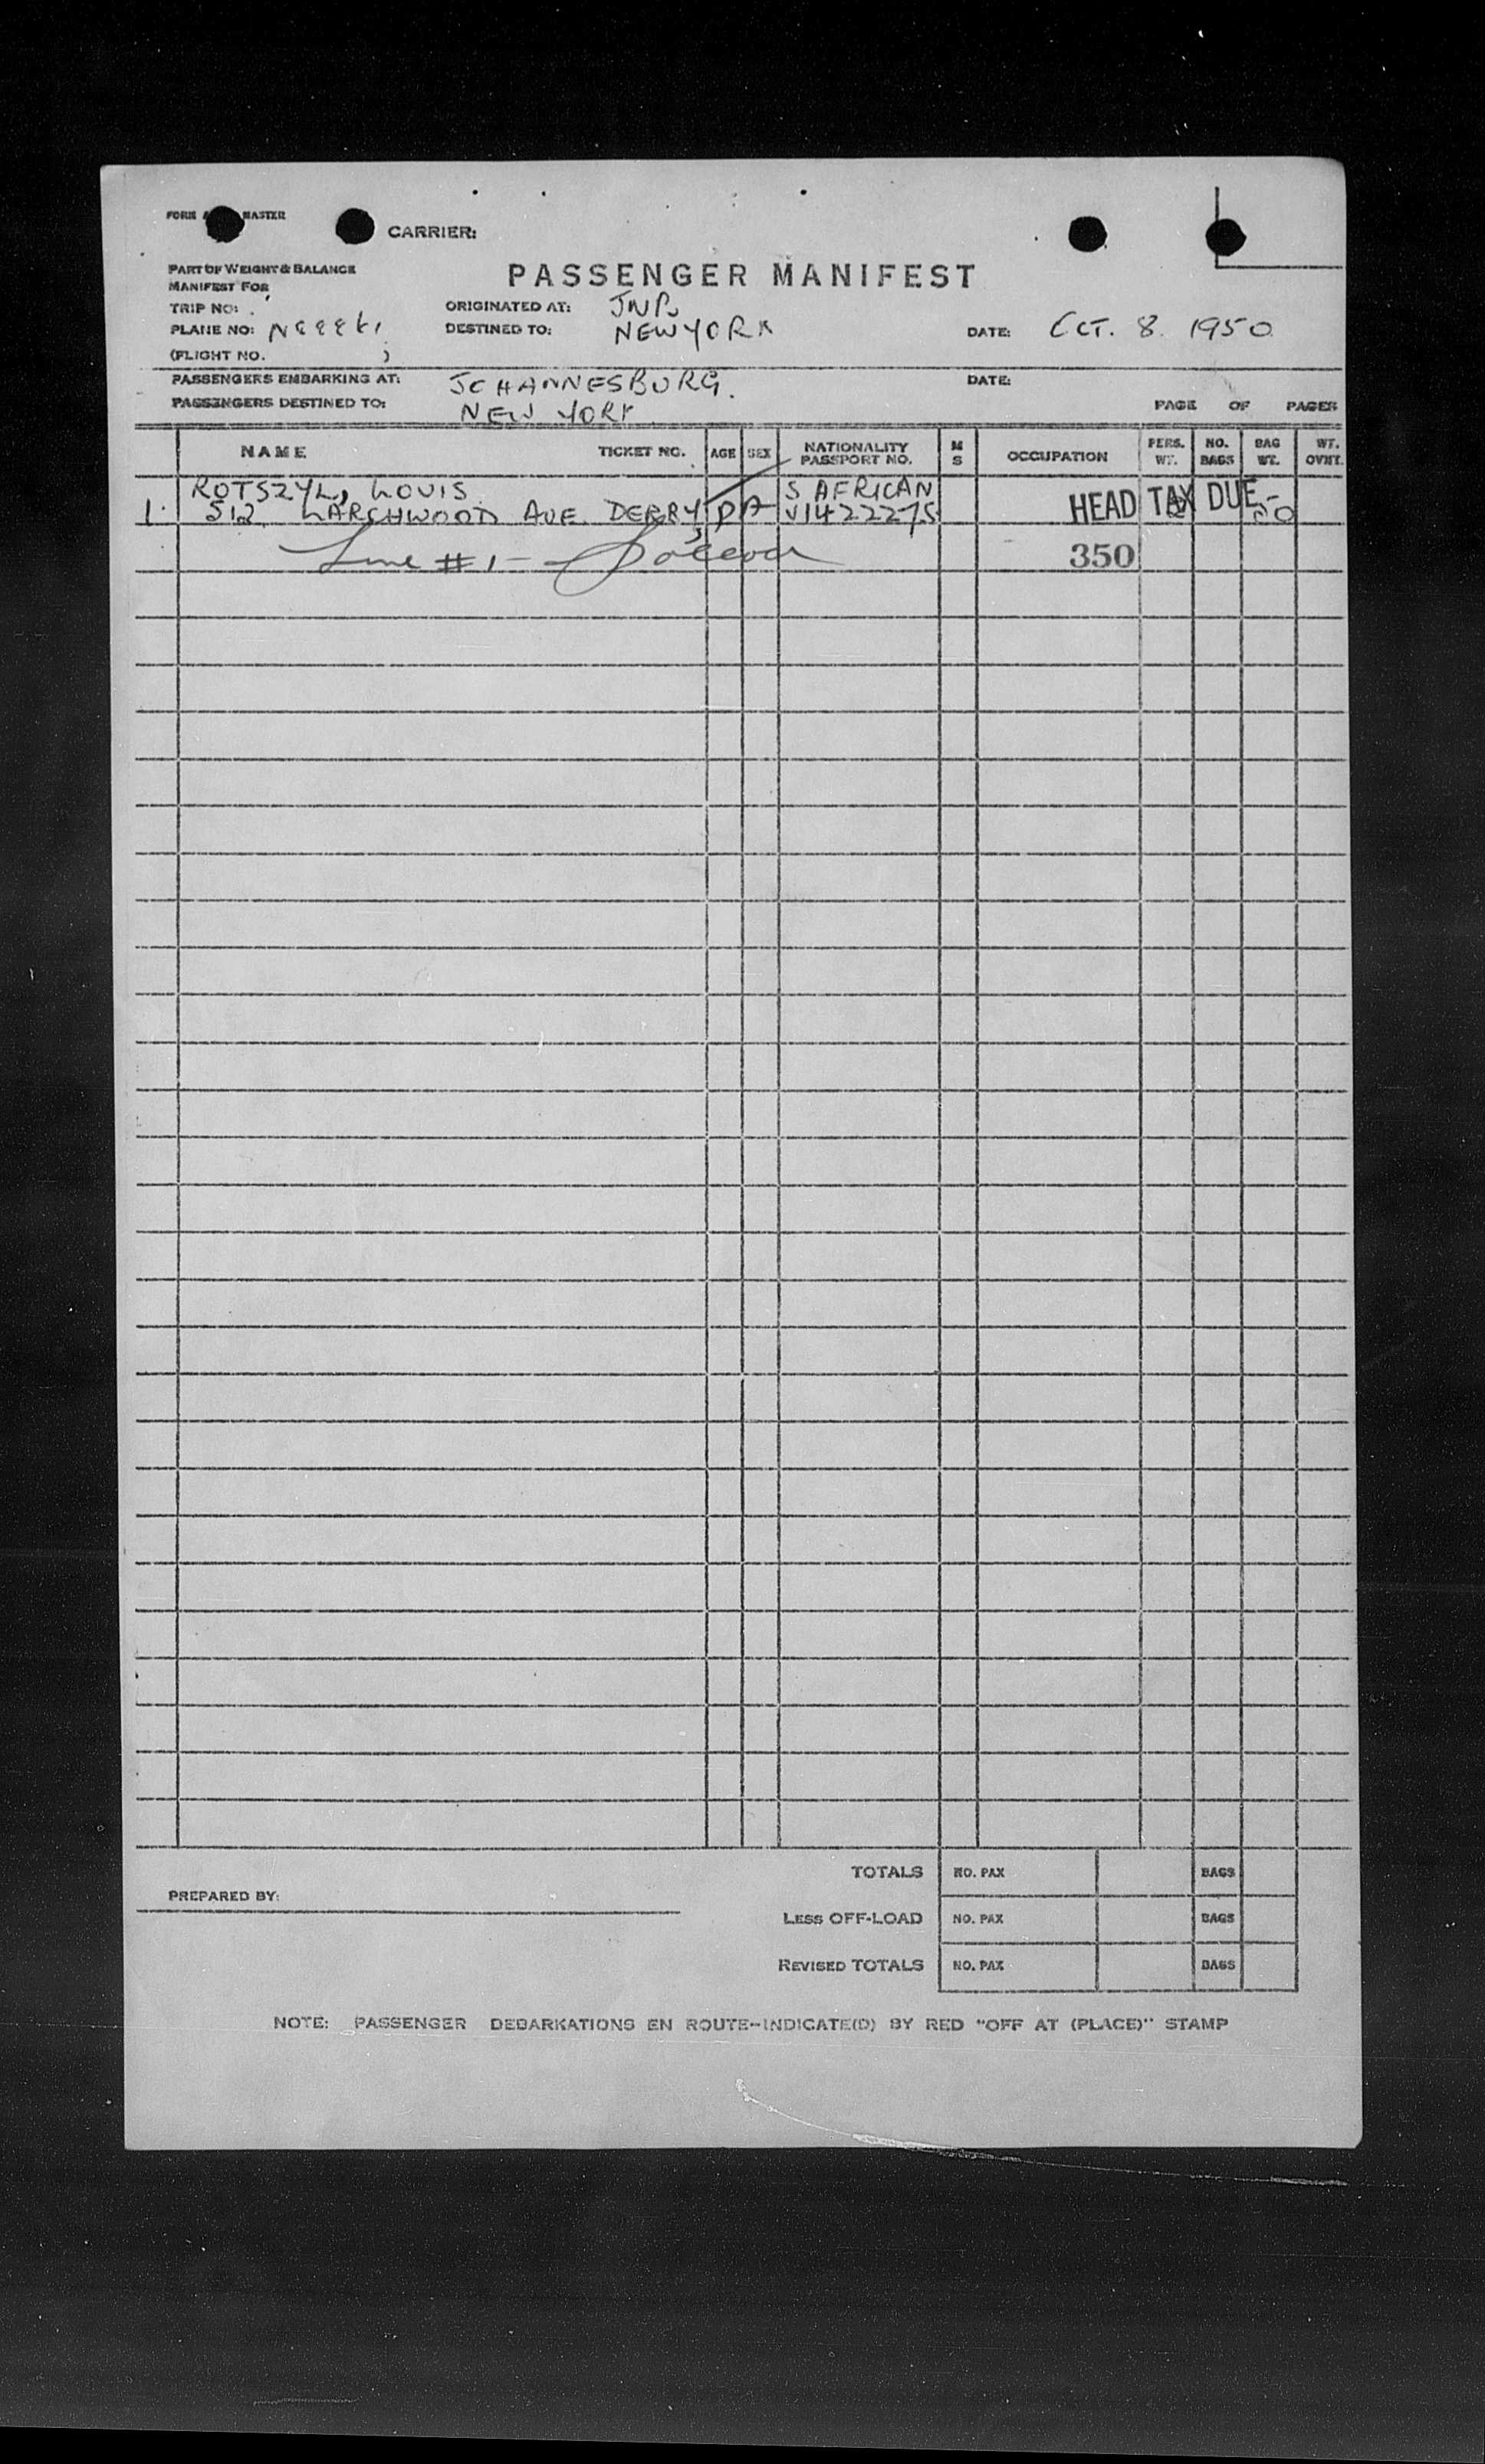 FORM MASTER
CARRIER:
PART OF WEIGHT & BALANCE
MANIFEST FOR
PASSENGER MANIFEST
TRIP NO:
ORIGINATED AT: JNB
PLANE NO:
DESTINED TO: NEW YORK
DATE: OCT. 8. 1950
(FLIGHT NO. )
PASSENGERS EMBARKING AT: JOHANNESBURG.
DATE:
PASSENGERS DESTINED TO: NEW YORK
PAGE OF PAGES
NAME TICKET NO. AGE SEX NATIONALITY PASSPORT NO. M S OCCUPATION PERS. WT. NO. BAGS BAG WT. WT. OVHT.
ROTSZYL, LOUIS S AFRICAN
1. 512 LARCHWOOD AVE. DERRY, PA V1422275 HEAD TAX DUE-
Line #1 - 350
TOTALS NO. PAX BAGS
PREPARED BY:
LESS OFF-LOAD NO. PAX BAGS
REVISED TOTALS NO. PAX BAGS
NOTE: PASSENGER DEBARKATIONS EN ROUTE-INDICATE(D) BY RED "OFF AT (PLACE)" STAMP